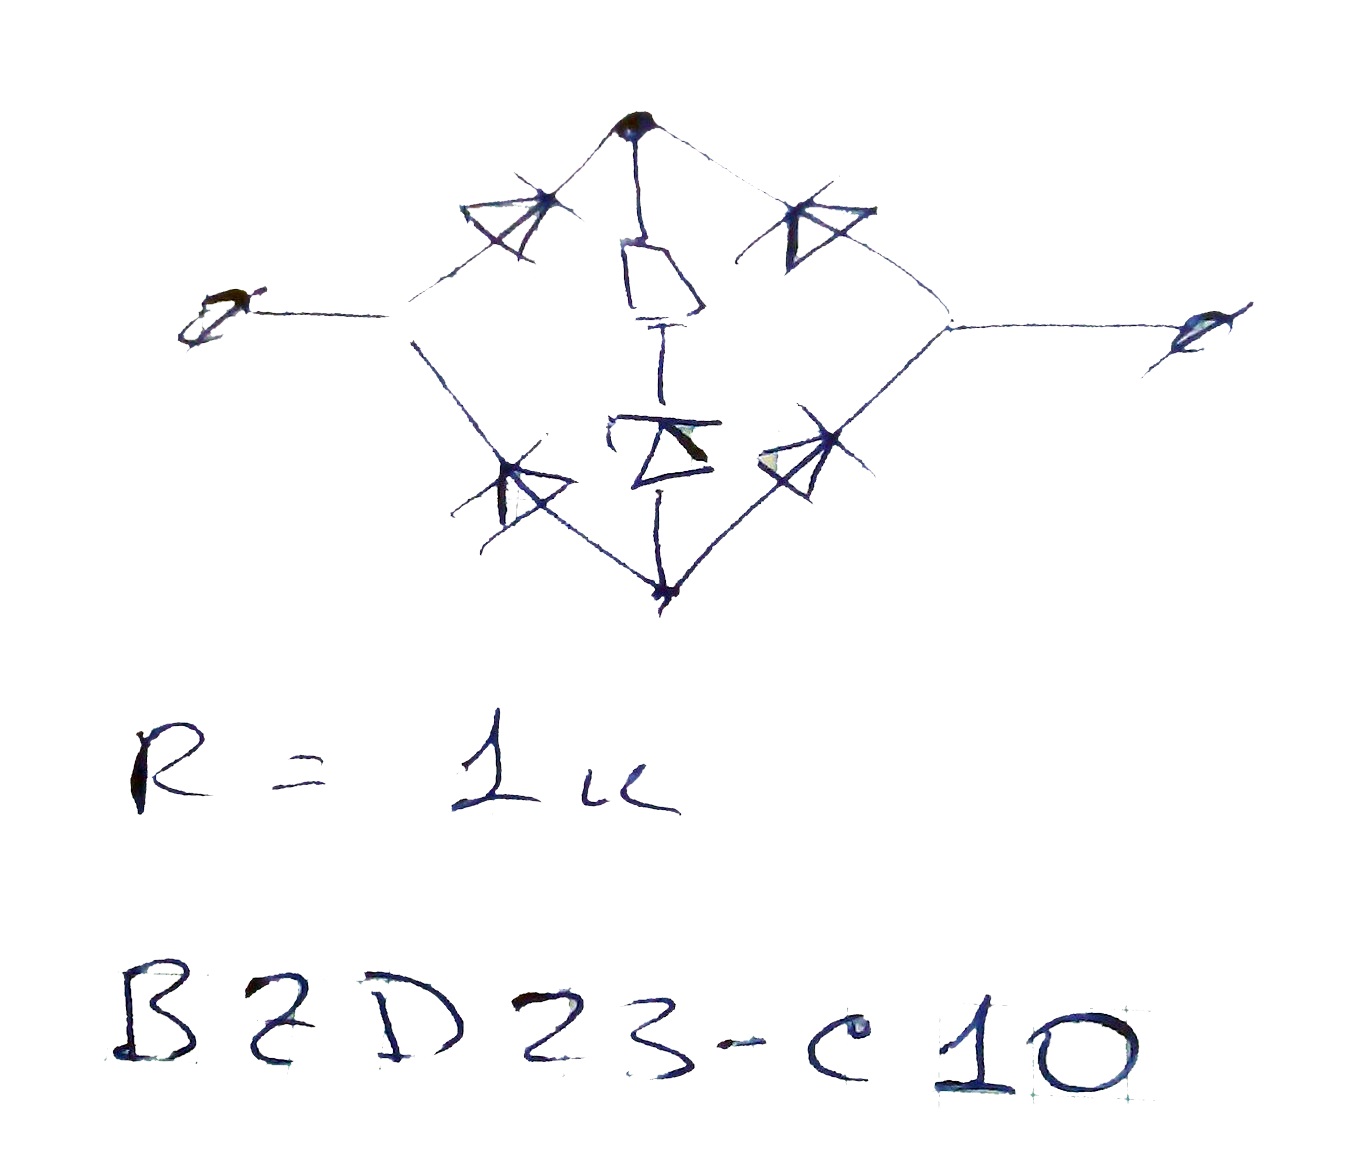 R = 1K
BZD23-C10